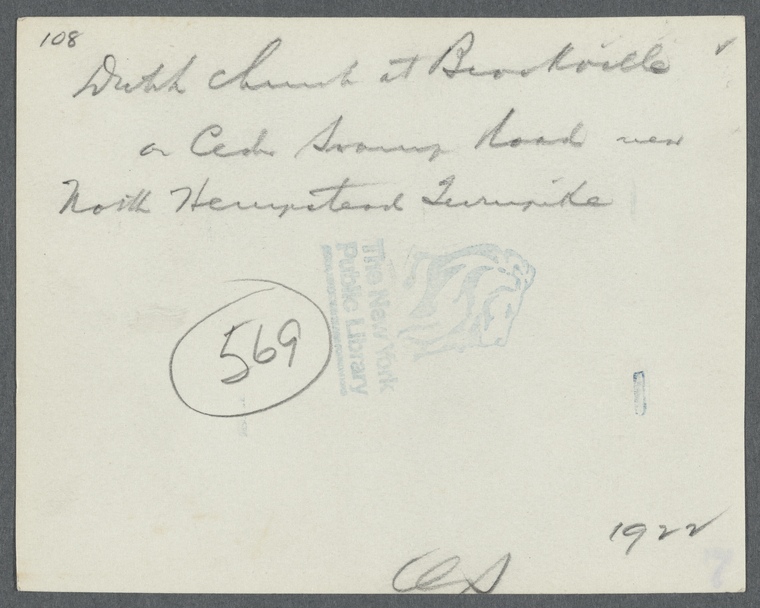 108
Dutch Church at Brookville
on Cedar Swamp Road near
North Hempstead Turnpike
The New York
Public Library
569
1922
7